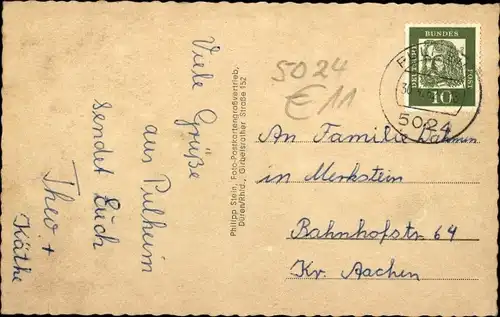 Viele Grüße
aus Pulheim
sendet Euch
Theo. +
Käthe
Philipp Stein, Foto-Postkartengroßvertrieb,
Düren/Rhld., Girbelsrather Straße 152
5024
€11
DEUTSCHE BUNDESPOST
10
5024
An Familie
in Merkstein
Bahnhofstr 64
Kr. Aachen